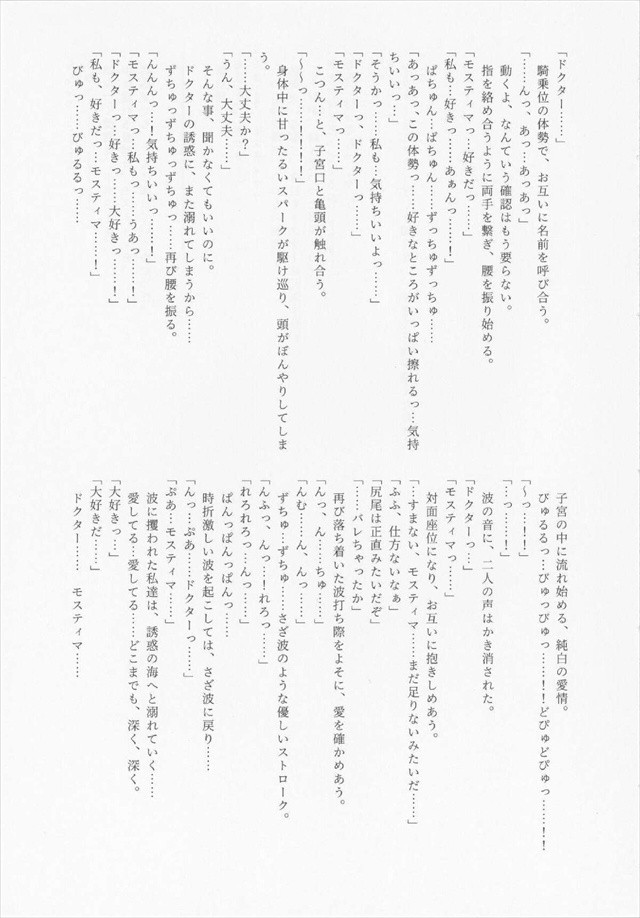 「ドクター……」
騎乗位の体勢で、お互いに名前を呼び合う。
「……んっ、あっ…あっあっ」
動くよ、なんていう確認はもう要らない。
指を絡め合うように両手を繋ぎ、腰を振り始める。
「モスティマっ…好きだっ……」
「私も…好きっ……あぁんっ……！」
ぱちゅん…ぱちゅん……ずっちゅずっちゅ……
「あっあっ、この体勢っ……好きなところがいっぱい擦れるっ…気持
ちいいっ…」
「そうかっ……私も…気持ちいいよっ……」
「ドクターっ、ドクターっ……」
「モスティマっ……」
こつん…と、子宮口と亀頭が触れ合う。
「～～っ…！！！！」
身体中に甘ったるいスパークが駆け巡り、頭がぼんやりしてしま
う。
「……大丈夫か？」
「うん、大丈夫……」
そんな事、聞かなくてもいいのに。
ドクターの誘惑に、また溺れてしまうから……
ずちゅっずちゅっずちゅっ……再び腰を振る。
「んんんっ…！気持ちいいっ……！」
「モスティマっ…私もっ……うあっ……！」
「ドクターっ…好きっ……大好きっ……！」
「私も、好きだっ…モスティマ……！」
びゅっ……びゅるるっ……
子宮の中に流れ始める、純白の愛情。
びゅるるっ…びゅっびゅっ……！！どぴゅどぴゅっ……！！
「～っ…！！」
「…っ……！」
波の音に、二人の声はかき消された。
「ドクターっ…」
「モスティマっ……」
対面座位になり、お互いに抱きしめあう。
「…すまない、モスティマ……まだ足りないみたいだ……」
「ふふ、仕方ないなぁ」
「尻尾は正直みたいだぞ」
「……バレちゃったか」
再び落ち着いた波打ち際をよそに、愛を確かめあう。
「んっ、ん……ちゅ……」
「んむ……ん、んっ……」
ずちゅ…ずちゅ……さざ波のような優しいストローク。
「んふっ、んっ…！れろっ……」
「れろれろっ…んっ……」
ぱんっぱんっぱんっ……
時折激しい波を起こしては、さざ波に戻り……
「んっ……ぷあ…ドクターっ……」
「ぷあ…モスティマ……」
波に攫われた私達は、誘惑の海へと溺れていく……
愛してる…愛してる……どこまでも、深く、深く。
「大好きっ…」
「大好きだ……」
ドクター……　モスティマ……